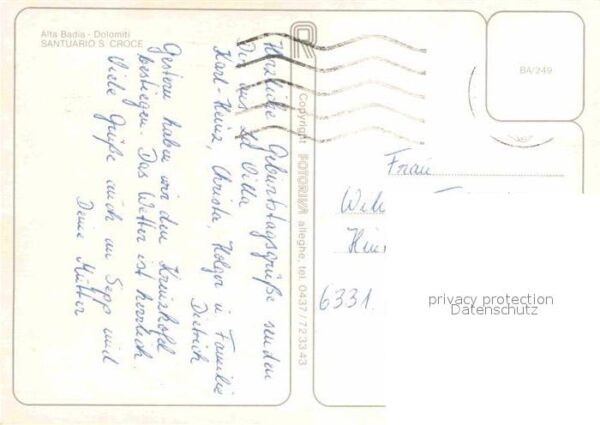 Alta Badia - Dolomiti
SANTUARIO S. CROCE
Herzliche Geburtstagsgrüße senden
Dir aus La Villa
Karl-Heinz, Christa, Holger u. Familie
Dietrich
Gestern haben wir den Kreuzkofel
bestiegen. Das Wetter ist herrlich.
Viele Grüße auch an Sepp und
Deine Mutter
Copyright FOTORIVA alleghe, tel. 0437/723343
BA/249
Frau
6331
privacy protection
Datenschutz